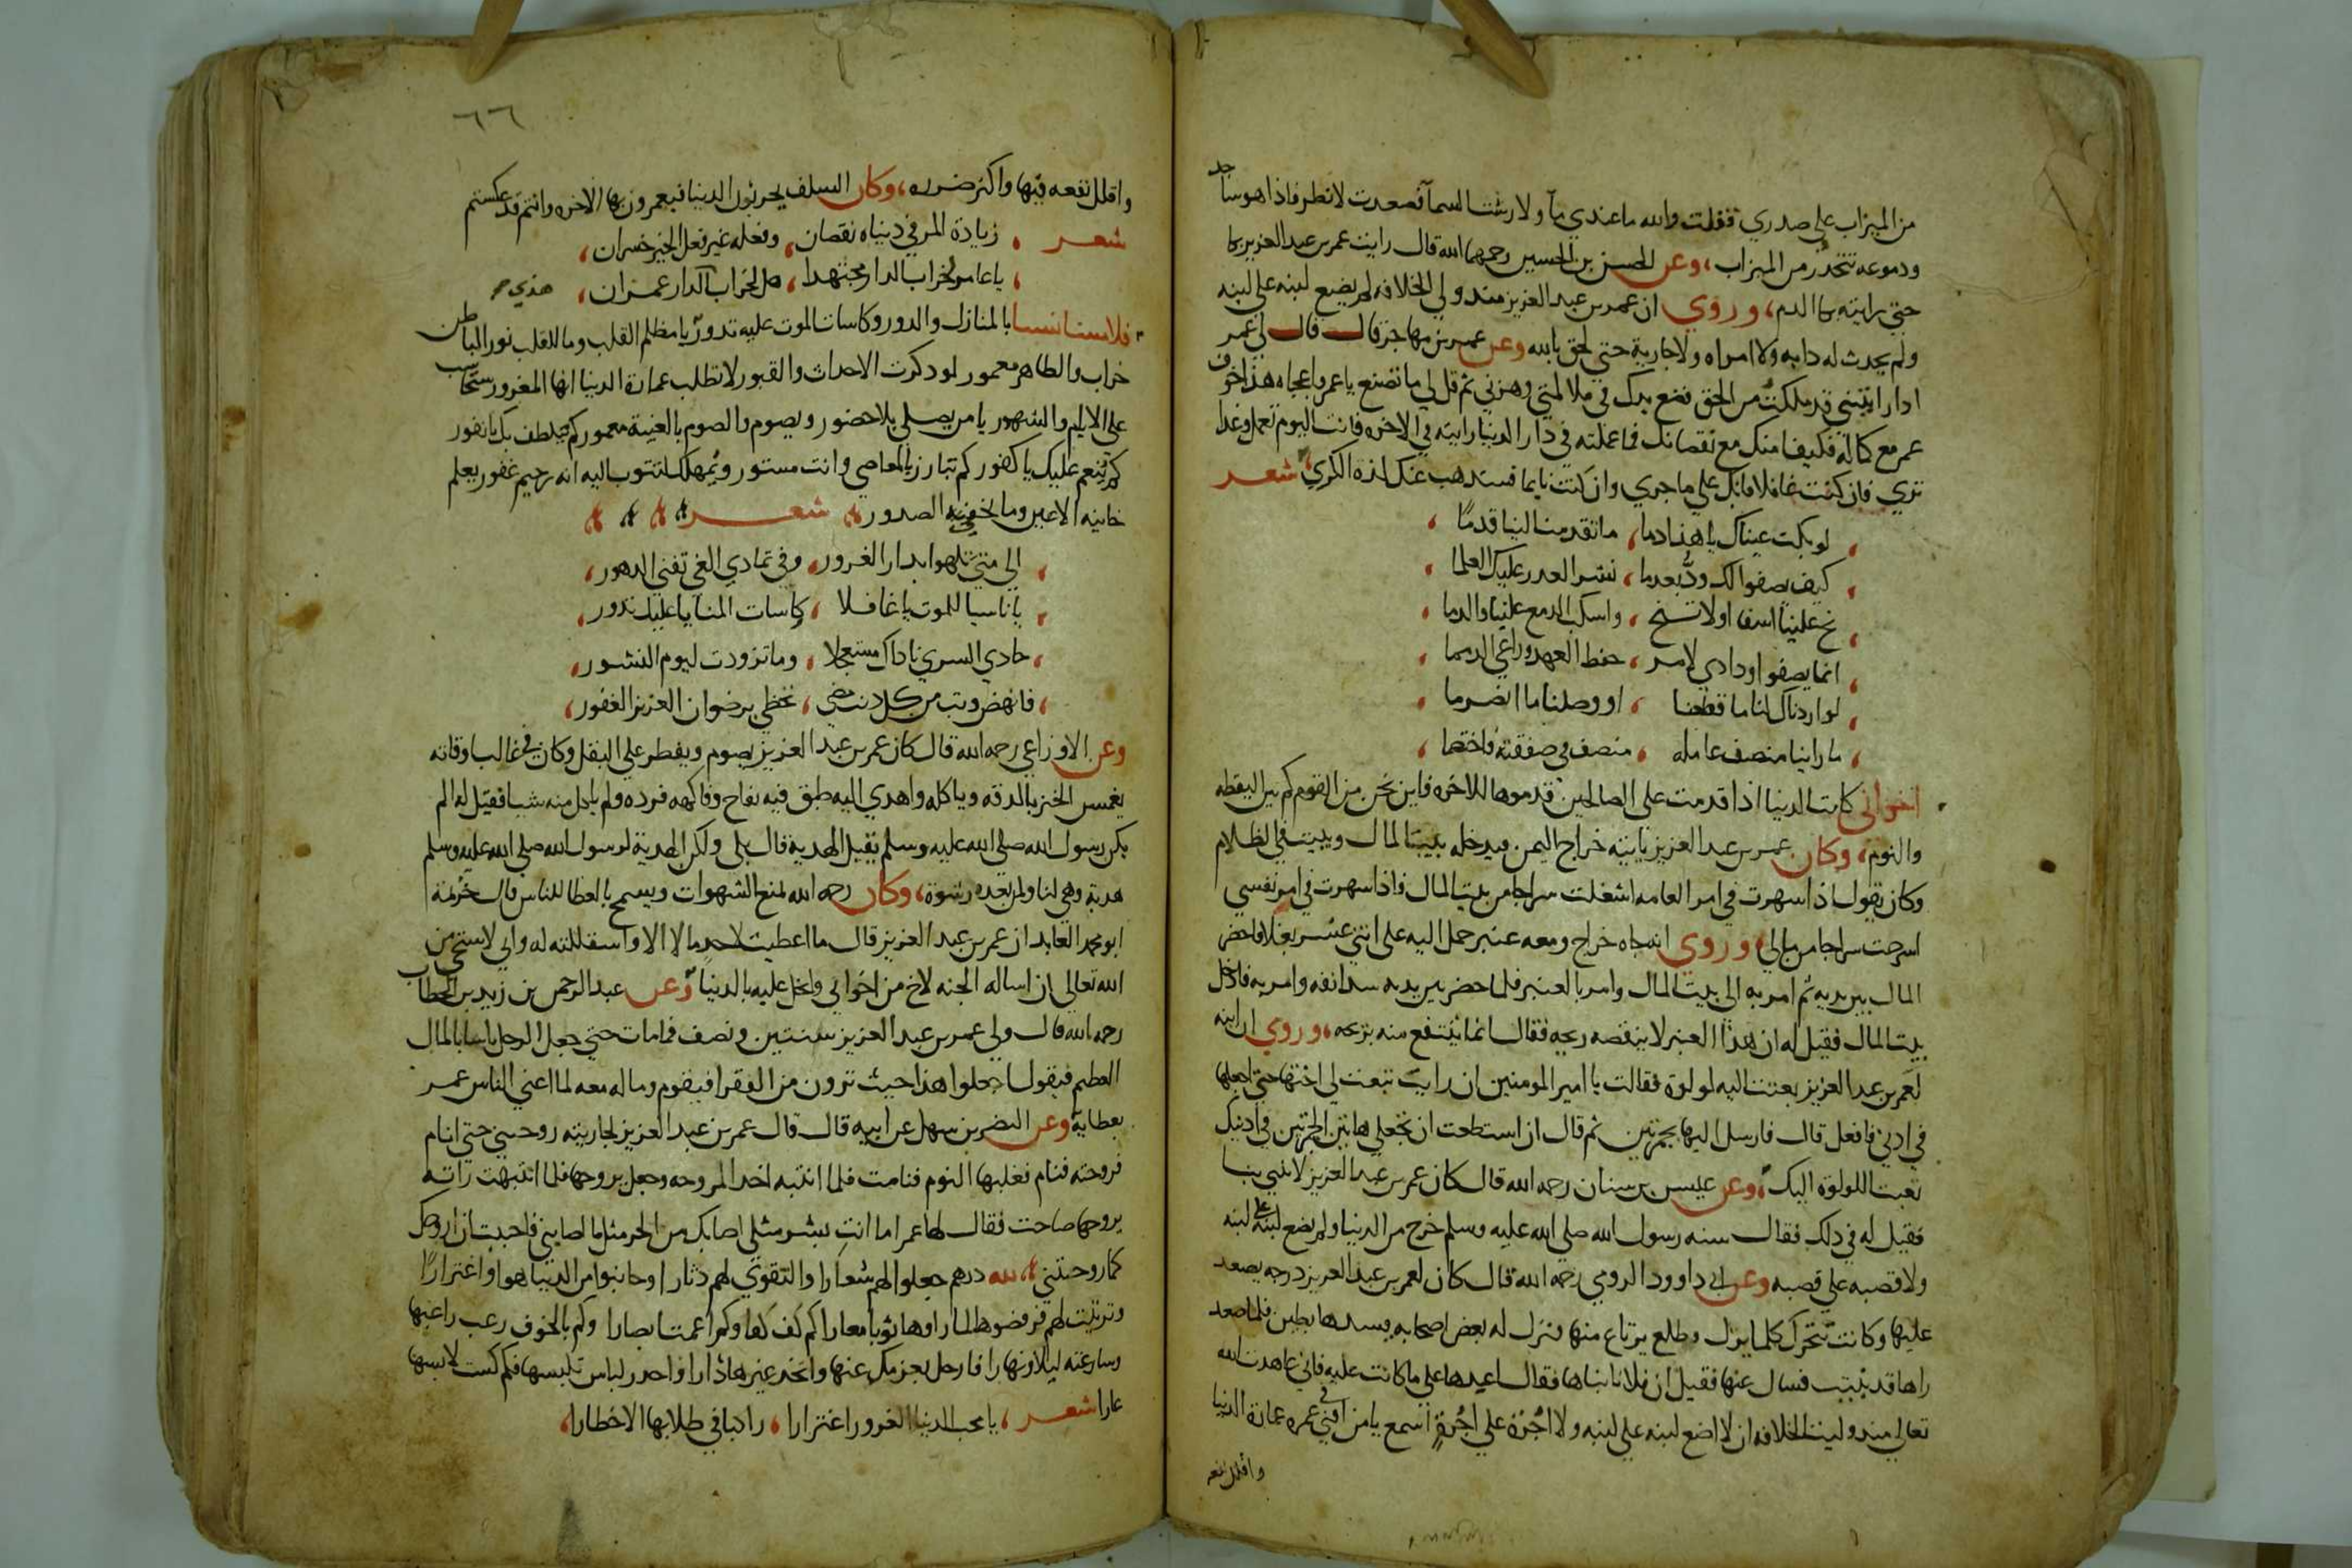 من الميزاب على صدري فقلت والله ما عندي ماء ولا رشت السما فصعدت لانظر فاذا هو ساجد
ودموعه تتحدر من الميزاب، وعن الحسن بن الحسين رحمهما الله قال رايت عمر بن عبد العزيز بكا
حتى رايته بكا الدم، وروي ان عمر بن عبد العزيز منذ ولي الخلافه لم يضع لبنه على لبنه
ولم يحدث له دابه ولا امراه ولا جارية حتى لحق بالله وعن عمر بن مهاجر قال قال لي عمر
اذا رايتني قد ملت من الحق فضع يدك في وهزني ثم قل لي ما تصنع يا عمر هذا خوف
عمر مع كماله فكيف امنك مع نقصانك فما عملته في دار الدنيا رايته في الاخره فانت اليوم تعمل وغدا
تري فان كنت غافلا فابك على ما جري وان كنت نايما فستذهب عنك لذه الكري شعر
لو بكت عيناك يا هذا دما، ما تقدمت الينا قدمًا
كيف يصفوا لك ودٌّ بعدما، نشر الغدر عليك العلما
نح علينا اسفا او لا تنح، واسكب الدمع علينا والدما
انما يصفوا ودادي لامر، حفظ العهد وراعي الذمما
لو اردناك لنا ما قطعنا، او وصلنا ما انصرما
ما راينا منصف عامله، منصف في صفقته فاختصما
اخواني كانت الدنيا اذا قدمت على الصالحين قدموها للاخره فاين نحن من القوم كم بين اليقظه
والنوم، وكان عمر بن عبد العزيز ياتيه خراج اليمن فيدخله بيت المال ويبيت في الظلام
وكان يقول اذا سهرت في امر العامه اشعلت سراجا من بيت المال فاذا سهرت في امر نفسي
اسرجت سراجا من مالي وروي انه جاه خراج ومعه عنبر حمل اليه على اثني عشر بغلا فاحضر
المال بين يديه ثم امر به الى بيت المال وامر بالعنبر فلما حضر بين يديه سد انفه وامر به فادخل
بيت المال فقيل له ان هذا العنبر لا ينقصه ريحه فقال انما ينتفع منه بريحه، وروي ان ابنه
لعمر بن عبد العزيز بعثت اليه لولوة فقالت يا امير المومنين ان رايت تبعث لي اختها حتى اجعلها
في ادني فافعل قال فارسل اليها بجمرتين ثم قال ان استطعت ان تجعلي هاتين الجمرتين في ادنيك
تعبث اللولوة اليك، وعن عيسى بن سنان رحمه الله قال كان عمر بن عبد العزيز لا يبني بنيا
فقيل له في ذلك فقال سنه رسول الله صلى الله عليه وسلم خرج من الدنيا ولم يضع لبنه على لبنه
ولا قصبه على قصبه وعن ابي داوود الرومي رحمه الله قال كان لعمر بن عبد العزيز درجه يصعد
عليها وكانت تتحرك كلما ينزل وطلع يرتاع منها فنزل له بعض اصحابه يسدها بطين فلما صعد
راها قد ثبتت فسال عنها فقيل ان فلانا بناها فقال اعيدها على ما كانت عليه فاني عاهدت الله
تعالى منذ وليت الخلافه ان لا اضع لبنه على لبنه ولا اجُرّة على اجُرّةٍ اسمع يا من افني عمره في عمارة الدنيا
واقلل نفعه
٦٦
واقلل نفعه فيها واكثر ضرره، وكان السلف يحرثون الدنيا فيعمرون بها الاخره وانتم قد عكستم
شعر، زيادة المر في دنياه نقصان، وفعله غير فعل الخير خسران،
يا عامر لخراب الدار مجتهدا، هل لخراب الدار عمران،
فلا مستانسا بالمنازل والدور وكاسات الموت عليه تدور يا مظلم القلب وما للقلب نور الباطن
خراب والظاهر معمور لو ذكرت الاجداث والقبور لا تطلب عمارة الدنيا ايها المغرور ستحاسب
على الايام والشهور يا من يصلي بلا حضور ويصوم والصوم بالغيبة معمور كم يلطف بك يا نفور
كم ينعم عليك يا كفور كم تبارز بالمعاصي وانت مستور ويمهلك لتتوب اليه انه رحيم غفور يعلم
خاينه الاعين وما تخفيه الصدور، شعر
الى متى تلهوا بدار الغرور، وفي تمادي الغي تفني الدهور،
يا ناسيا للموت يا غافلا، كاسات المنايا عليك تدور،
حادي السري ناداك مستعجلا، وما تزودت ليوم النشور،
فانهض وتب من كل ذنب مضى، تحظى برضوان العزيز الغفور،
وعن الاوزاعي رحمه الله قال كان عمر بن عبد العزيز يصوم ويفطر على البقل وكان في غالب اوقاته
يغمس الخبز بالدقه وياكله واهدي اليه طبق فيه تفاح وفاكهه فرده ولم ياكل منه شيا فقيل له الم
يكن رسول الله صلى الله عليه وسلم يقبل الهدية قال بلى ولكن الهدية لرسول الله صلى الله عليه وسلم
هدية وهي لنا ولمن بعده رشوة، وكان رحمه الله لمنع الشهوات ويسمح بالعطا للناس قال خزيمة
ابو محمد العابد ان عمر بن عبد العزيز قال ما اعطيت لاحد مالا الا واستقللته له واني لاستحي من
الله تعالى ان اساله الجنه لاخ من اخواني وابخل عليه بالدنيا، وعن عبد الرحمن بن زيد بن الخطاب
رحمه الله قال ولي عمر بن عبد العزيز سنتين ونصف فما مات حتى جعل الرجل ياتينا بالمال
العظيم فيقول اجعلوا هذا حيث ترون من الفقرا فيقوم وماله معه لما اغني الناس عمر
بعطايه وعن النضر بن سهل عن ابيه قال قال عمر بن عبد العزيز لجاريته روحيني حتى انام
فروحته فنام فغلبها النوم فنامت فلما انتبه اخد المروحه وجعل يروحها فلما انتبهت راته
يروحها صاحت فقال لها عمر اما انتِ بشر مثلي اصابك من الحر مثل ما اصابني فاحببت ان اروحك
كما روحتني، لله درهم جعلوا الهم شعارا والتقوي لهم دثارا وجانبوا من الدنيا هوا واغترارًا
وتزينت لهم فرفضوها لما راوها ثوبا معارا كم كف كفا وكم اعمت ابصارا وكم بالخوف رعب راغبها
وسارعته ليلا ونهارا فارحل بعزمك عنها واتخد غيرها دارا واحدر لباس تلبسها فكم كست لابسها
عارا شعر، يا محب الدنيا الغرور اغترارا، راكبا في طلابها الاخطارا،